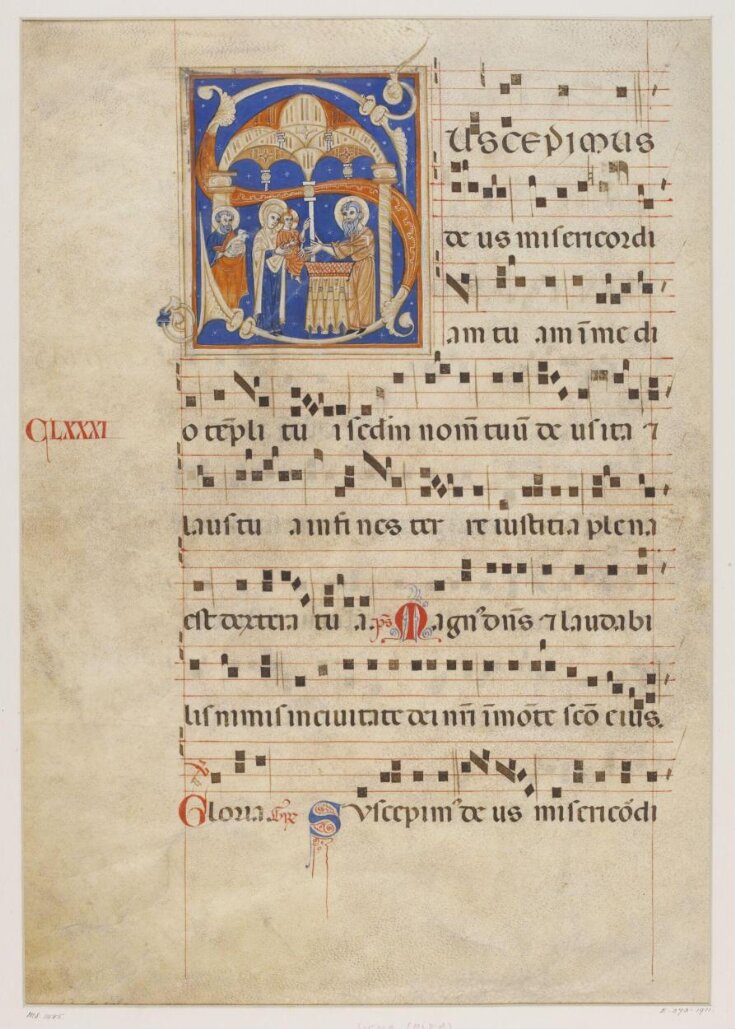 USCEPIMUS
de us misericordi
am tu am ī me di
CLXXXI
o tēpli tu i sedm̄ nom̄ tuū de us ita ⁊
laus tu a in fi nes ter re iustitia plena
est dextera tu a. ps̄ Magn' dn̄s ⁊ laudabi
lis nimis in civitate dei nr̄i ī mōte scō eius.
Gloria. Suscepim' de us misericōdi
MS. 1485
E.273-1911.